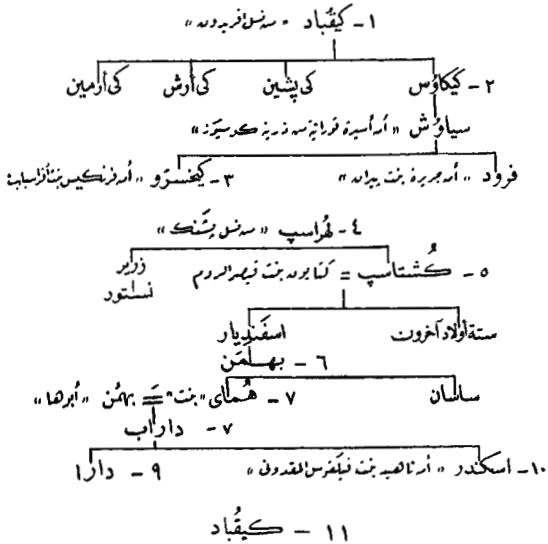 ١ - كيقُباد « من نسل افريدون »
٢ - كَيكاوُس كى پشين كى أرش كى أرمين
سياوُش « أمه أسيرة تورانية من ذرية كرسيوز »
فرود « أمه جريرة بنت پيران » ٣ - كيخسرَو « أمه فرنگيس بنت أفراسياب »
٤ - لهُراسپ « من نسل پشَنگ »
٥ - كُشتاسپ = كتايون بنت قيصر الروم زرير
نستور
ستة أولاد آخرون اسفَنديار
٦ - بهمَن
ساسان ٧ - هُماى « بنت » = بهمُن « أبوها »
٧ - داراب
١٠ - اسكندر « أمه ناهيد بنت فيلقوس المقدونى » ٩ - دارا
١١ - كيقُباد